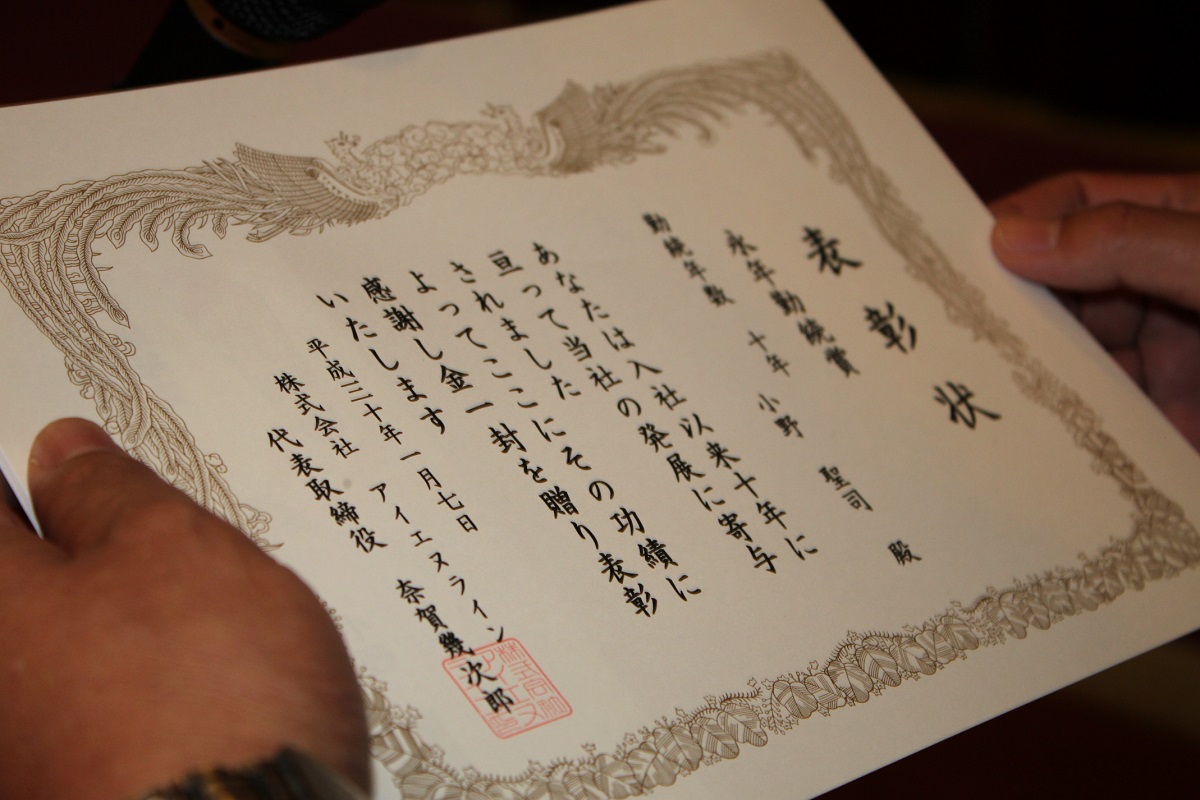 表彰状
永年勤続賞
勤続年数 十年 小野 聖司 殿
あなたは入社以来十年に
亘って当社の発展に寄与
されましたここにその功績に
よって金一封を贈り表彰
感謝し
いたします
平成三十年一月七日
株式会社 アイエヌライン
代表取締役 奈賀幾次郎